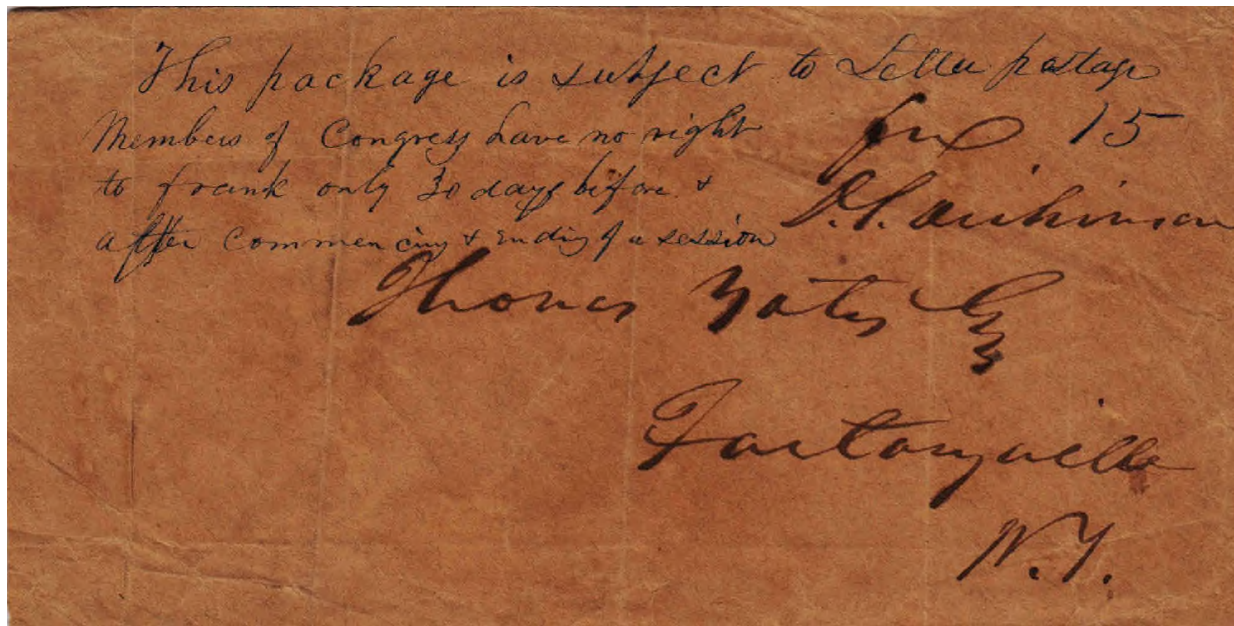 This package is subject to Letter postage
Members of Congress have no right
to frank only 30 days before &
after commencing & ending of a session
free 15
D. S. Dickinson
Thomas Yates Esq
Factoryville
N. Y.